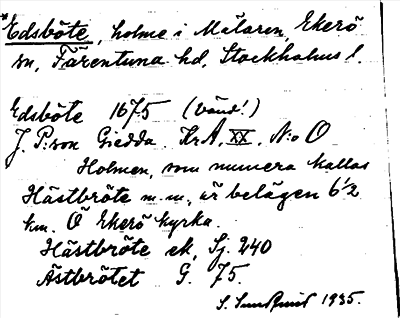 *Edsböte, holme i Mälaren, Ekerö
sn, Färentuna hd, Stockholms l.
Edsböte 1675 (vänd!)
J. P:son Giedda. Kr A, XX, N:o O
Holmen, som numera kallas
Hästbröte m.m., är belägen 6 1/2
km. Ö Ekerö kyrka.
Hästbröte ek, Sj. 240
Ästbrötet G. 75.
S. 1935.